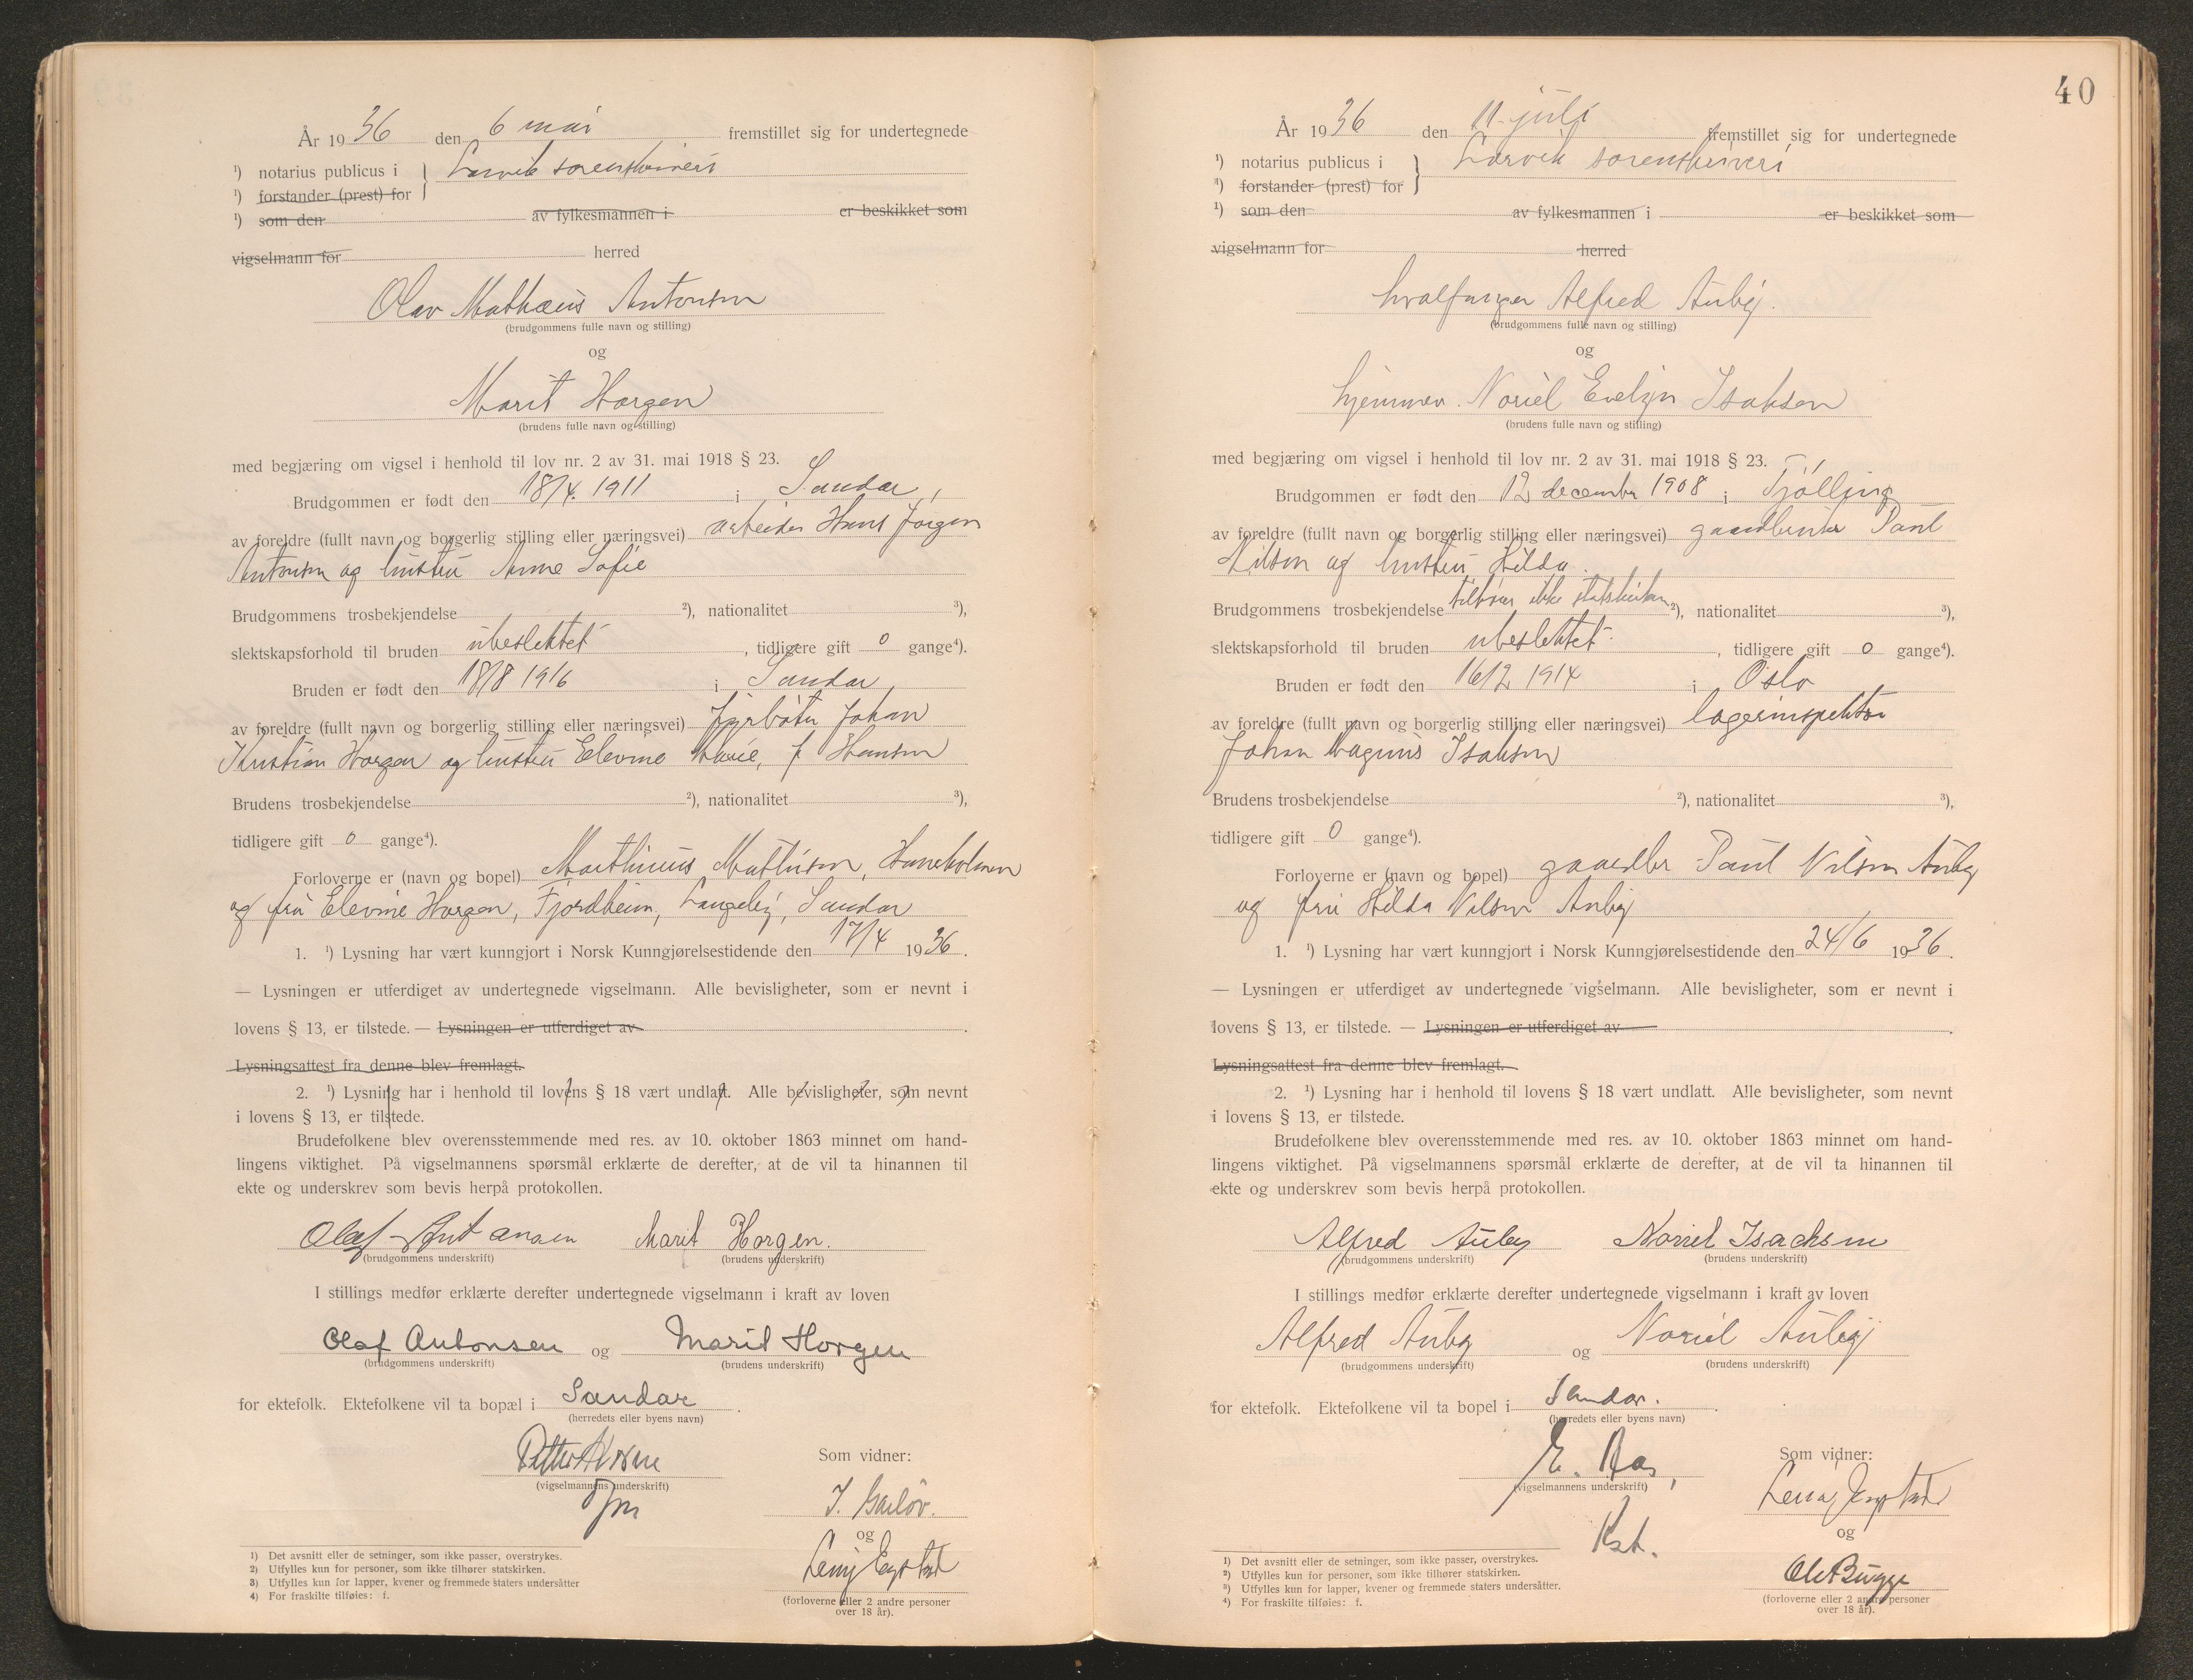 År 1936 den 6 mai fremstillet sig for undertegnede
¹) notarius publicus i } Larvik sorenskriveri
¹) forstander (prest) for
¹) som den av fylkesmannen i er beskikket som
vigselmann for herred
Olav Mathæus Antonsen
(brudgommens fulle navn og stilling)
og
Marit Horgen
(brudens fulle navn og stilling)
med begjæring om vigsel i henhold til lov nr. 2 av 31. mai 1918 § 23.
Brudgommen er født den 18/4. 1911 i Sandar,
av foreldre (fullt navn og borgerlig stilling eller næringsvei) arbeider Hans Jørgen
Antonsen og hustru Anne Sofie
Brudgommens trosbekjendelse ²), nationalitet ³),
slektskapsforhold til bruden ubeslektet, tidligere gift 0 gange⁴).
Bruden er født den 18/8 1916 i Sandar
av foreldre (fullt navn og borgerlig stilling eller næringsvei) Fyrbøter Johan
Kristian Horgen og hustru Elevine Marie, f Hansen
Brudens trosbekjendelse ²), nationalitet ³),
tidligere gift 0 gange⁴).
Forloverne er (navn og bopel) Marthinius Mathisen, Haneholmen
og fru Elevine Horgen, Fjordheim, Langeby, Sandar
1. ¹) Lysning har vært kunngjort i Norsk Kunngjørelsestidende den 17/4 1936.
— Lysningen er utferdiget av undertegnede vigselmann. Alle bevisligheter, som er nevnt i
lovens § 13, er tilstede. — Lysningen er utferdiget av .
Lysningsattest fra denne blev fremlagt.
2. ¹) Lysning har i henhold til lovens § 18 vært undlatt. Alle bevisligheter, som nevnt
i lovens § 13, er tilstede.
Brudefolkene blev overensstemmende med res. av 10. oktober 1863 minnet om hand-
lingens viktighet. På vigselmannens spørsmål erklærte de derefter, at de vil ta hinannen til
ekte og underskrev som bevis herpå protokollen.
Olaf Antonsen Marit Horgen.
(brudgommens underskrift) (brudens underskrift)
I stillings medfør erklærte derefter undertegnede vigselmann i kraft av loven
Olaf Antonsen og Marit Horgen
(brudgommens underskrift) (brudens underskrift)
for ektefolk. Ektefolkene vil ta bopæl i Sandar.
(herredets eller byens navn)
Som vidner:
(vigselmannens underskrift)
og
(forloverne eller 2 andre personer
over 18 år).
1) Det avsnitt eller de setninger, som ikke passer, overstrykes.
2) Utfylles kun for personer, som ikke tilhører statskirken.
3) Utfylles kun for lapper, kvener og fremmede staters undersåtter
4) For fraskilte tilføies: f.
40
År 1936 den 11. juli fremstillet sig for undertegnede
¹) notarius publicus i } Larvik sorenskriveri
¹) forstander (prest) for
¹) som den av fylkesmannen i er beskikket som
vigselmann for herred
hvalfanger Alfred Auby.
(brudgommens fulle navn og stilling)
og
hjemmev. Noriel Evelyn Isaksen
(brudens fulle navn og stilling)
med begjæring om vigsel i henhold til lov nr. 2 av 31. mai 1918 § 23.
Brudgommen er født den 12 december 1908 i Tjølling
av foreldre (fullt navn og borgerlig stilling eller næringsvei) gaardbruker Paul
Nilsen og hustru Hilda.
Brudgommens trosbekjendelse tilhører ikke statskirken ²), nationalitet ³),
slektskapsforhold til bruden ubeslektet., tidligere gift 0 gange⁴).
Bruden er født den 16/2 1914 i Oslo
av foreldre (fullt navn og borgerlig stilling eller næringsvei) lagerinspektør
Johan Magnus Isaksen
Brudens trosbekjendelse ²), nationalitet ³),
tidligere gift 0 gange⁴).
Forloverne er (navn og bopel) gaardbr Paul Nilsen Auby
og fru Hilda Nilsen Auby
1. ¹) Lysning har vært kunngjort i Norsk Kunngjørelsestidende den 24/6 1936.
— Lysningen er utferdiget av undertegnede vigselmann. Alle bevisligheter, som er nevnt i
lovens § 13, er tilstede. — Lysningen er utferdiget av .
Lysningsattest fra denne blev fremlagt.
2. ¹) Lysning har i henhold til lovens § 18 vært undlatt. Alle bevisligheter, som nevnt
i lovens § 13, er tilstede.
Brudefolkene blev overensstemmende med res. av 10. oktober 1863 minnet om hand-
lingens viktighet. På vigselmannens spørsmål erklærte de derefter, at de vil ta hinannen til
ekte og underskrev som bevis herpå protokollen.
Alfred Auby Norriel Isachsen
(brudgommens underskrift) (brudens underskrift)
I stillings medfør erklærte derefter undertegnede vigselmann i kraft av loven
Alfred Auby og Noriel Auby
(brudgommens underskrift) (brudens underskrift)
for ektefolk. Ektefolkene vil ta bopel i Sandar.
(herredets eller byens navn)
E. Aas, Som vidner:
(vigselmannens underskrift)
Kst. og
Ole Bugge
(forloverne eller 2 andre personer
over 18 år).
1) Det avsnitt eller de setninger, som ikke passer, overstrykes.
2) Utfylles kun for personer, som ikke tilhører statskirken.
3) Utfylles kun for lapper, kvener og fremmede staters undersåtter.
4) For fraskilte tilføies: f.